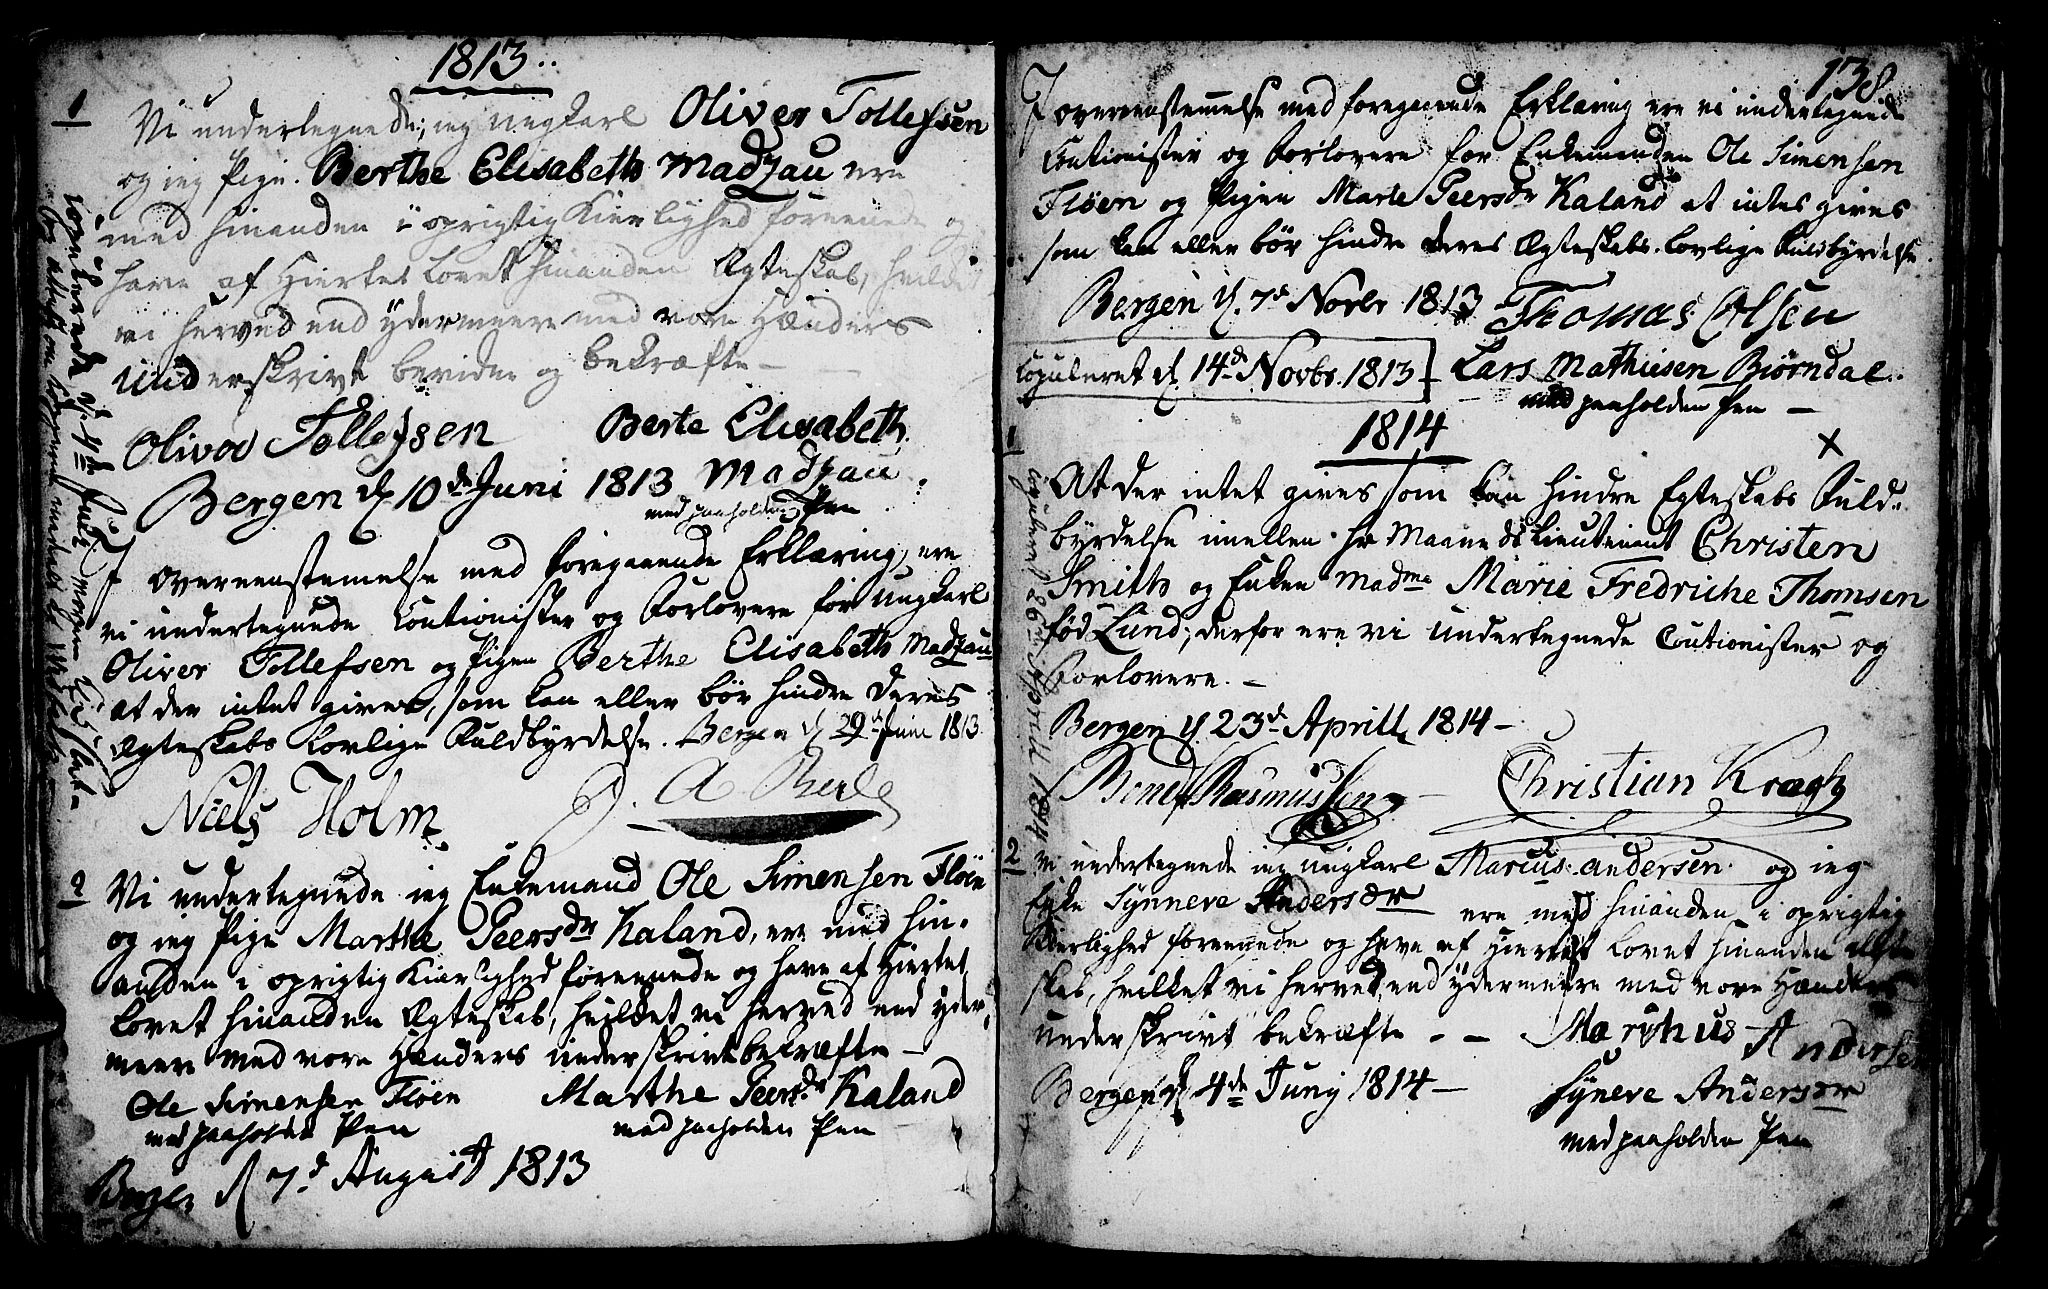 1813
1
Vi undertegnede, jeg ungkarl Oliver Tollefsen
og jeg Pige Berthe Elisabeth Madzau ere
med hinanden i oprigtig Kierlighed foreenede og
have af Hiertet lovet hinanden Ægteskab, hvilket
vi herved end ydermeere med vore Hænders
underskrivt bevidne og bekræfte —
Oliver Tollefsen Berte Elisabeth
Bergen d. 10de Juni 1813 Madzau
med paaholden Pen
I overeenstemelse med foregaaende Erklæring, ere
vi undertegnede Cautionister og Forlovere for ungkarl
Oliver Tollefsen og Pigen Berthe Elisabeth Madzau
at der intet gives, som kan eller bør hindre deres
Ægteskabs lovlige Fuldbyrdelse. Bergen d. 29de Juni 1813
Niels Holm A
copulerede d. 4de
2
Vi undertegnede jeg Enkemand Ole Simensen Fløen
og jeg Pige Marthe Peersdr Kaland, ere med hin-
anden i oprigtig Kierlighed foreenede og have af Hiertet
lovet hinanden Ægteskab, hvilket vi herved end yder-
meere med vore Hænders underskrivt bekræfte —
Ole Simensen Fløen Marthe Peersdr Kaland
med paaholden Pen med paaholden Pen
Bergen d. 7de August 1813
138
I overeenstemmelse med foregaaende Erklæring ere vi undertegnede
Cautionister og Forlovere for Enkemanden Ole Simensen
Fløen og Pigen Marte Peersdr Kaland at intet gives
som kan eller bør hindre deres Ægteskabs lovlige Fuldbyrdelse.
Bergen d. 7de Novbr 1813 Thomas Olsen
Copuleret d. 14de Novbr. 1813 Lars Mathiesen Biørndal
med paaholden Pen —
1814
1
At der intet gives som kan hindre Egteskabs Fuld-
byrdelse imellem Hr Maaneds Lieutenant Christen
Smith og Enken Madme Marie Fredriche Thomsen
fød Lund; derfor ere vi undertegnede Cautionister og
Forlovere. —
Bergen d 23de Aprill 1814 —
Rasmussen Christian Kragh
copuleret d. 26de Aprill 1814
2
Vi undertegnede jeg ungkarl Marcus Andersen og jeg
Enke Synneve Andersdr ere med hinanden i oprigtig
Kierlighed foreenede og have af Hiertet lovet hinanden Ægte-
skab, hvilket vi herved end ydermeere med vore Hænders
underskrivt bekræfte — Marthus Andersen
Bergen d. 4de Juny 1814 — Syneve Andersdr
med paaholden Pen